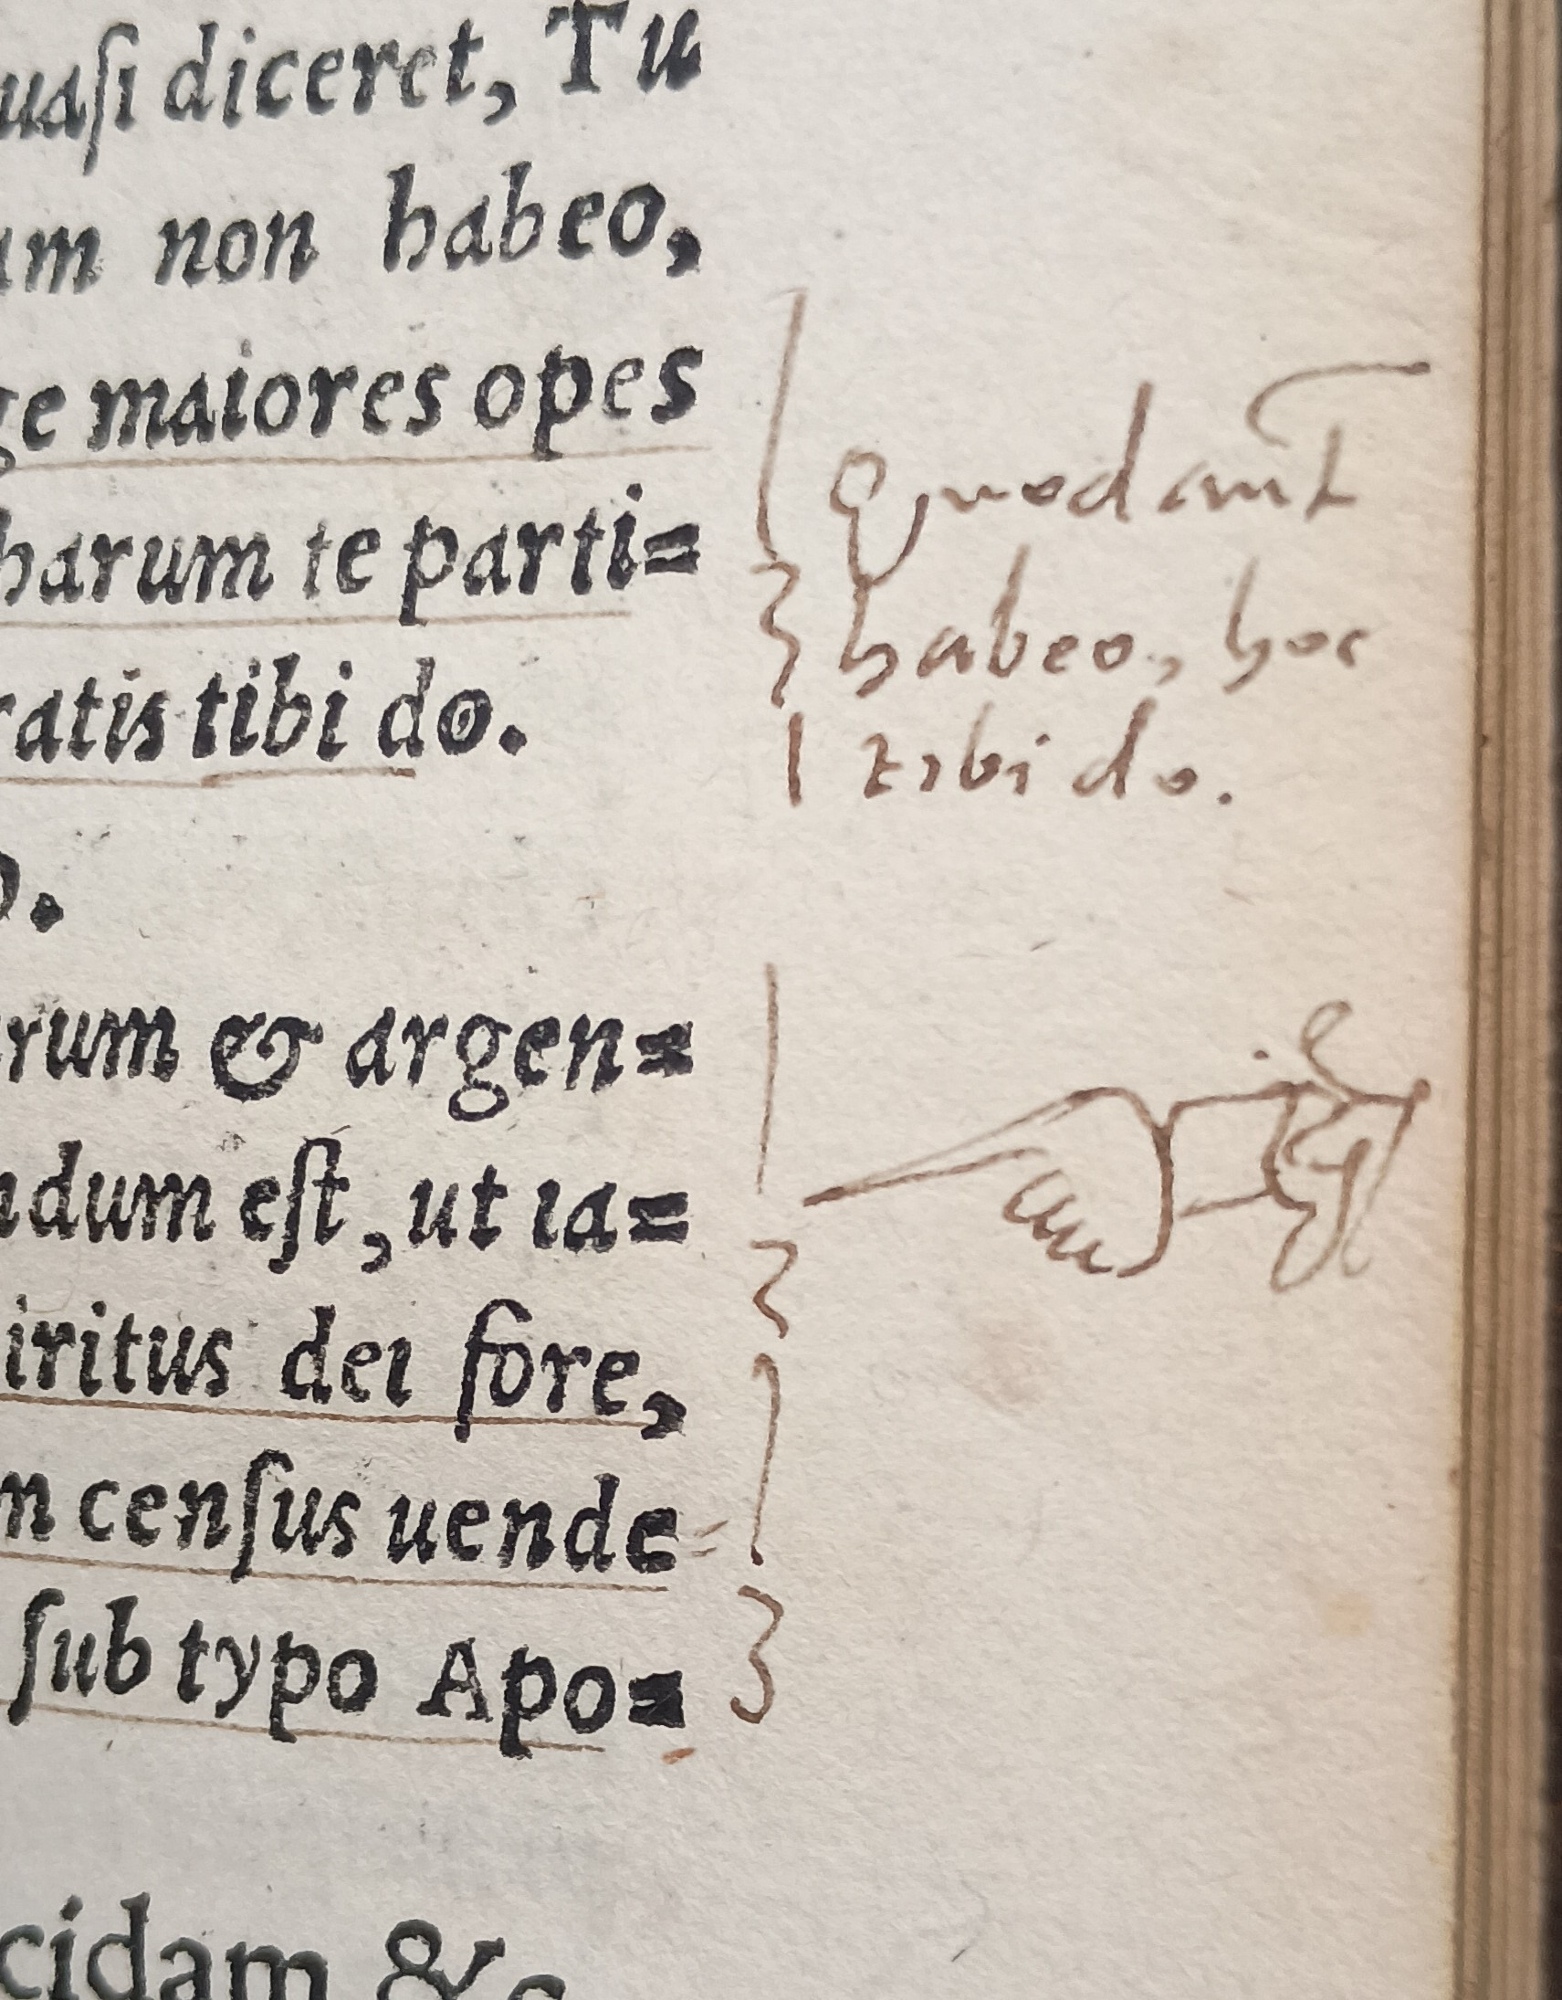 uaſi diceret, Tu
um non habeo,
ge maiores opes
harum te parti=
ratis tibi do.
o.
rum & argen=
ndum eſt, ut ia=
iritus dei fore,
m cenſus uende
ſub typo Apo=
cidam &c
Quod aut̄
habeo, hoc
tibi do.